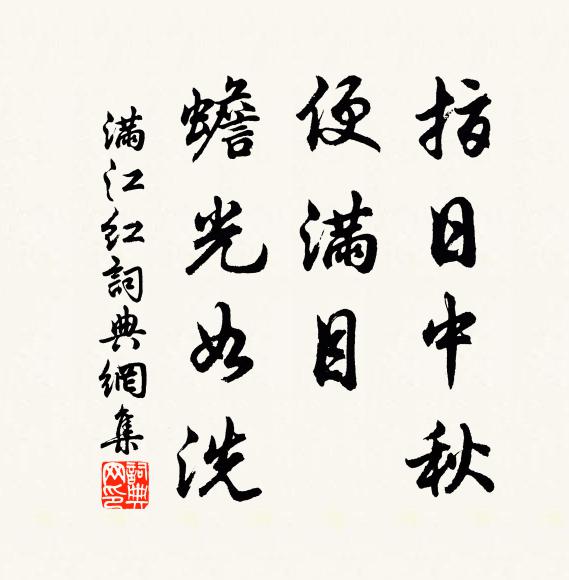 指日中秋
便滿目
蟾光如洗
滿江紅詞典網集
詞典网印